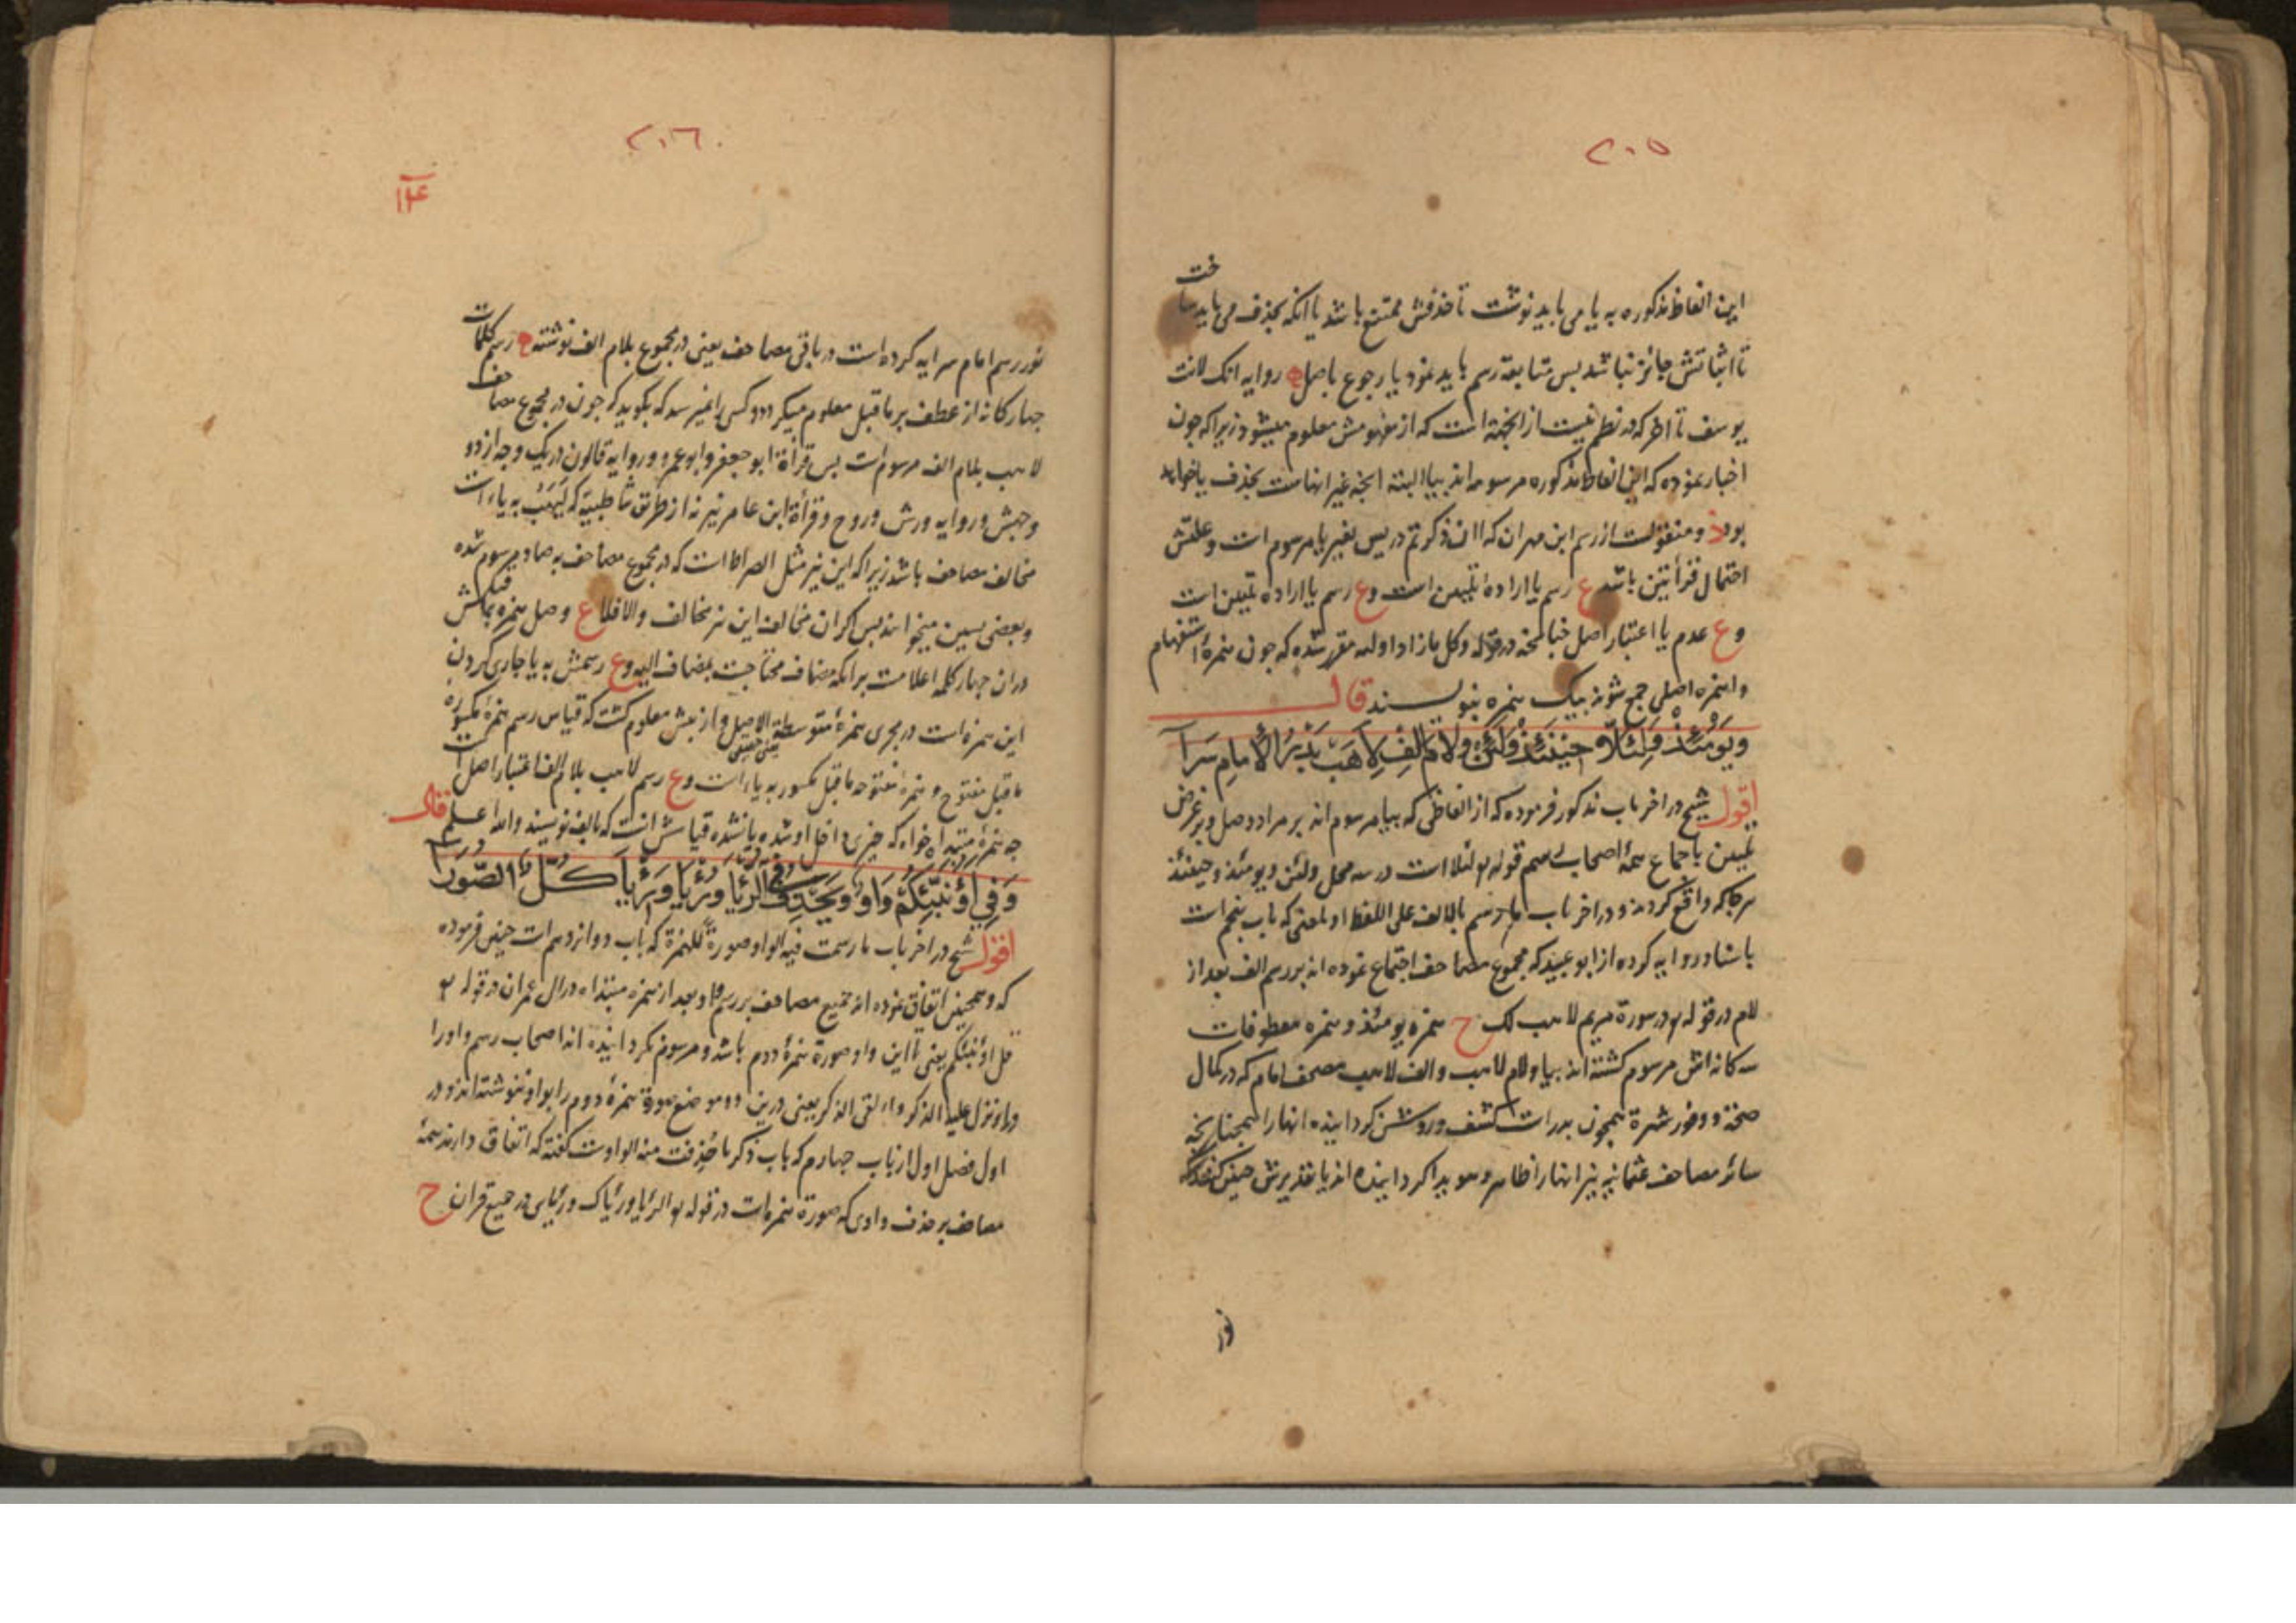 ۲۰۵
این الفاظ مذکوره به یا می باید نوشت تا حذفش ممتنع باشد یا انکه بحذف می باید ساخت
تا اثباتش جائز نباشد بس متابعة رسم باید نمود یا رجوع باصل روایه انک لانت
یوسف تا اخر که در نظم نیست از انجهة است که از مفهومش معلوم میشود زیرا که جون
اخبار نموده که این الفاظ مذکوره مرسوم اند بیا البته انجه غیر اینهاست بحذف یا خواهد
بود و منقولست از رسم ابن مهران که اان ذکرتم در یس بغیر یا مرسوم است و علتش
احتمال قرأتین باشد ع رسم یا اراده تلیین است وع رسم یا اراده تلیین است
وع عدم یا اعتبار اصل جنانجه در قوله وکل ما زاد اولیه مقرر شده که جون همزهٔ استفهام
و همزه اصلی جمع شوند بیک همزه بنویسند قال
ویومئذ ولئلا حینئذ ولئن ولام الف لاهب بدر الامام سرا
اقول شیخ در اخر باب مذکور فرموده که از الفاظی که بیا مرسوم اند بر مراد وصل و بر غرض
تلیین باجماع همهٔ اصحاب رسم قوله تع لئلا است در سه محل ولئن ویومئذ وحینئذ
هرجا که واقع کردند و در اخر باب ما رسم بالالف علی اللفظ او لمعنی که باب پنجم است
باسناد روایه کرده از ابو عبید که مجموع مصاحف اجتماع نموده اند بر رسم الف بعد از
لام در قوله تع در سورة مریم لاهب لک ح همزه یومئذ و همزه معطوفات
سه کانه اش مرسوم کشته اند بیا ولام لاهب والف لاهب مصحف امام که در کمال
صحة و وفور شهرة همجون بدر است کشف و روشن کردانیده انها را همجنانجه
سائر مصاحف عثمانیه نیز انها را ظاهر و هویدا کردانیده اند یا تقدیرش جنین کنند که
نور
۲۰۶
۱۲۴
نور رسم امام سرایه کرده است در باقی مصاحف یعنی در مجموع بلام الف نوشته رسم کلمات
جهار کانه از عطف بر ما قبل معلوم میکردد و کسی را نمیرسد که بکوید که جون در مجموع مصاحف
لاهب بلام الف مرسوم است بس قرأة ابو جعفر و ابو عمرو و روایه قالون در یک وجه از دو
وجهش و روایه ورش و روح و قرأة ابن عامر نیز نه از طریق شاطبیة که لیهب به یاء است
مخالف مصاحف باشد زیرا که این نیز مثل الصراط است که در مجموع مصاحف به صاد مرسوم شده
و بعضی بسین میخوانند بس اکر ان مخالف این نیز مخالف والا فلا ع وصل همزه بماقبلش
در ان جهار کلمه اعلامست برانکه مضاف محتاجست بمضاف الیه وع رسمش به یا جاری کردن
این همزه است در مجری همزهٔ متوسطة الاصل و از بیش معلوم کشت که قیاس رسم همزهٔ مکسوره
یعنی حقیقی
ما قبل مفتوح و همزهٔ مفتوحه ما قبل مکسور به یاء است وع رسم لاهب بلام الف اعتبار اصل است
جه همزهٔ مبتداه خواه که جیزی داخل او شده یا نشده قیاسش انست که بالف نویسند والله اعلم قال
وفی اؤنبئکم واو ویحذف فی الرئیا ورئیا ورئیا کل الصورا
اقول شیخ در اخر باب ما رسمت فیه الواو صورة للهمزة که باب دوازدهم است جنین فرموده
که و همجنین اتفاق نموده اند جمیع مصاحف بر رسم واو بعد از همزه مبتداه در ال عمران در قوله تع
قل اؤنبئکم یعنی تا این واو صورة همزهٔ دوم باشد و مرسوم نکردانیده اند اصحاب رسم واو را
در او نزل علیه الذکر و اءلقی الذکر یعنی درین دو موضع صورة همزهٔ دوم را بواو ننوشته اند و در
اول فصل اول از باب جهارم که باب ذکر ما حذفت منه الواو است کفته که اتفاق دارند همهٔ
مصاحف بر حذف واوی که صورة همزه است در قوله تع الرئیا ورئیاک ورئیای در جمیع قران ح